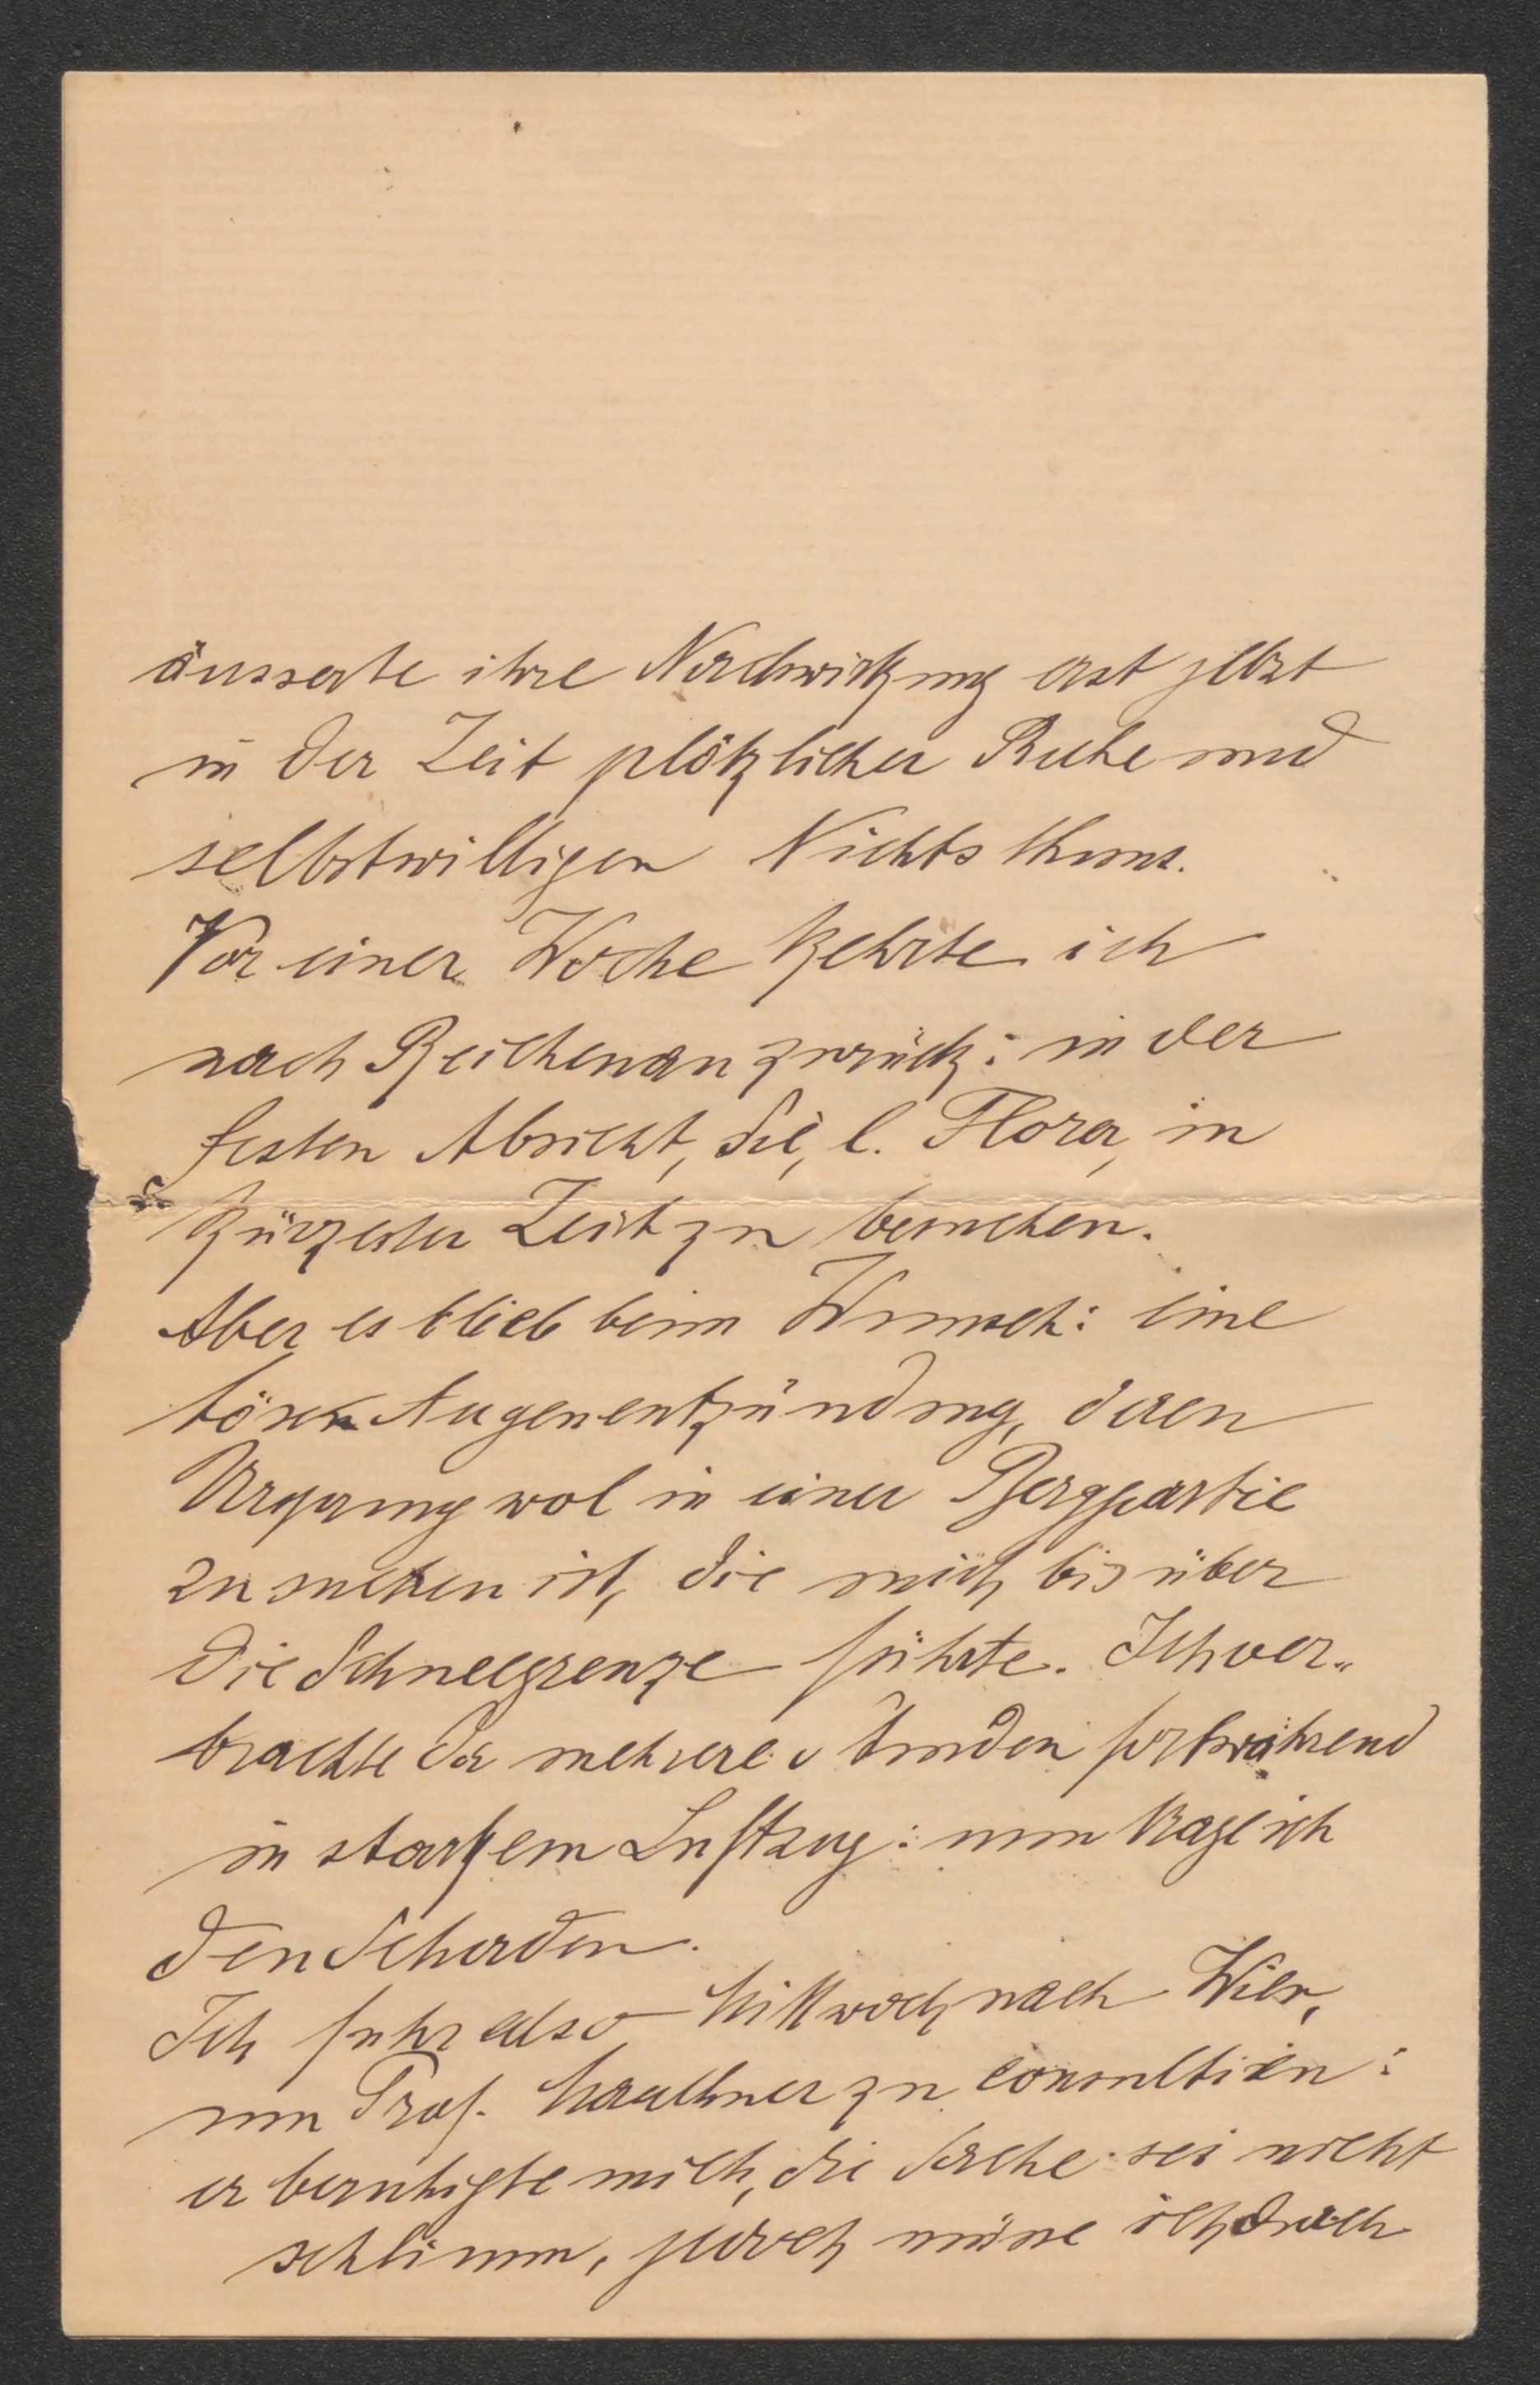 äusserte ihre Nachwirkung erst jetzt
in der Zeit plötzlicher Ruhe und
selbstwilligen Nichtsthuns.
Vor einer Woche kehrte ich
nach Reichenau zurück: in der
festen Absicht, Sie, l. Flora, in
kürzester Zeit zu besuchen.
Aber es blieb beim Wunsch: eine
böse Augenentzündung, deren
Ursprung wol in einer Bergpartie
zu suchen ist, die mich bis über
die Schneegrenze führte. Ich ver„
brachte da mehrere Stunden fortwährend
in starkem Luftzug: nun trage ich
den Schaden.
Ich fuhr also Mittwoch nach Wien,
um Prof. Mauthner zu consultiren:
er beruhigte mich, die Sache sei nicht
schlimm, jedoch müsse ich durch